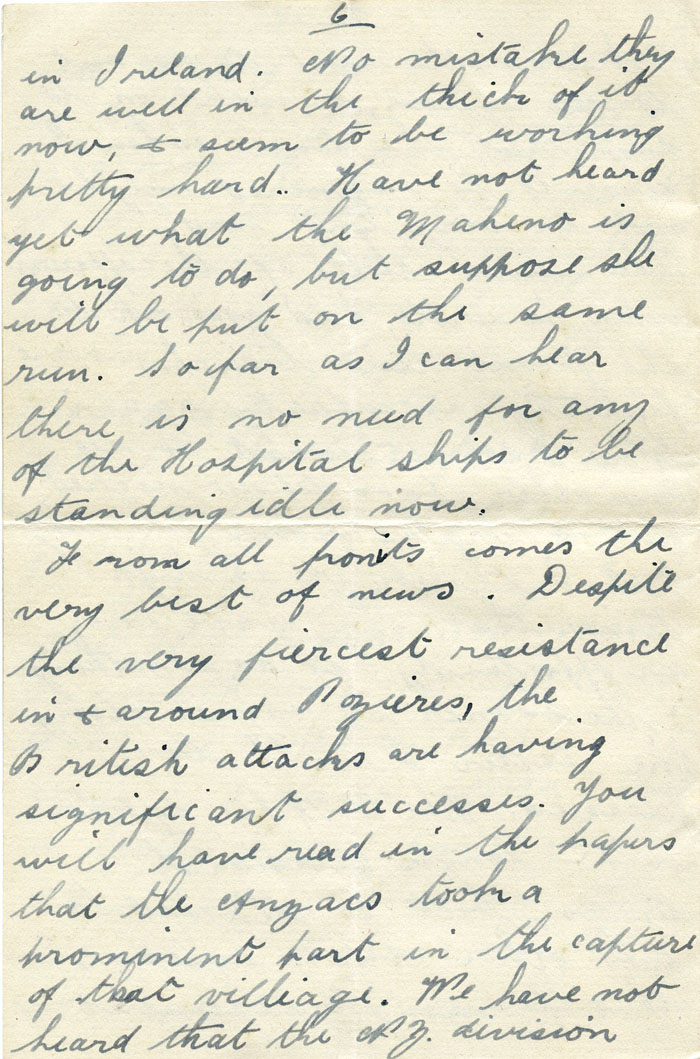 6
in Ireland. No mistake they
are well in the thick of it
now, & seem to be working
pretty hard.. Have not heard
yet what the Maheno is
going to do, but suppose she
will be put on the same
run. So far as I can hear
there is no need for any
of the Hospital ships to be
standing idle now.
From all fronts comes the
very best of news. Despite
the very fiercest resistance
in & around Pozieres, the
British attacks are having
significant successes. You
will have read in the papers
that the Anzacs took a
prominent part in the capture
of that villiage. We have not
heard that the N.Z. division